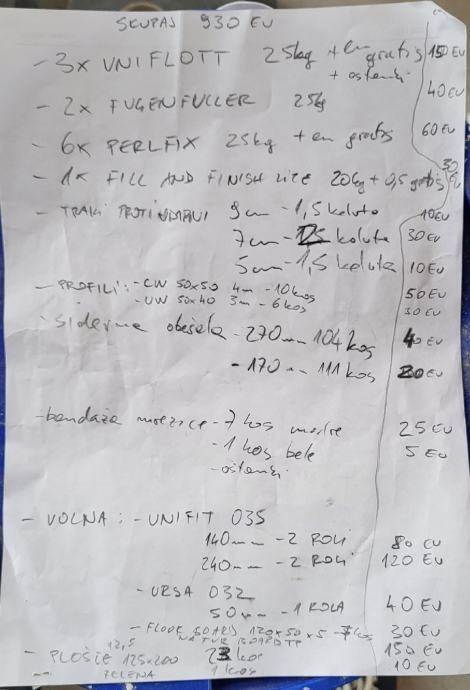 SKUPAJ 930 EU
- 3x UNIFLOTT 25kg + en gratis 150 EU
+ ostanki
- 2x FUGENFULLER 25kg 40 EU
- 6x PERLFIX 25kg + en gratis 60 EU
- 1x FILL AND FINISH LITE 20kg + 0,5 gratis 30 EU
- TRAKI PROTI 9cm - 1,5 koluta 10 EU
7cm - koluta 30 EU
5cm - 1,5 koluta 10 EU
- PROFILI: - CW 50x50 4m - 10 kos 50 EU
- UW 50x40 3m - 6 kos 30 EU
- Siderna obešala - 270mm 104 kos 40 EU
- 170mm 111 kos EU
- bandaža mrežice - 7 kos modre 25 EU
- 1 kos bele 5 EU
- ostanki
- VOLNA: - UNIFIT 035
140mm - 2 ROLI 80 EU
240mm - 2 ROLI 120 EU
- URSA 032
50mm - 1 ROLA 40 EU
- FLOOR BOARD 120x50x5 - kos 30 EU
12,5
- PLOŠČE 125x200 kos 150 EU
ZELENA 1 kos 10 EU